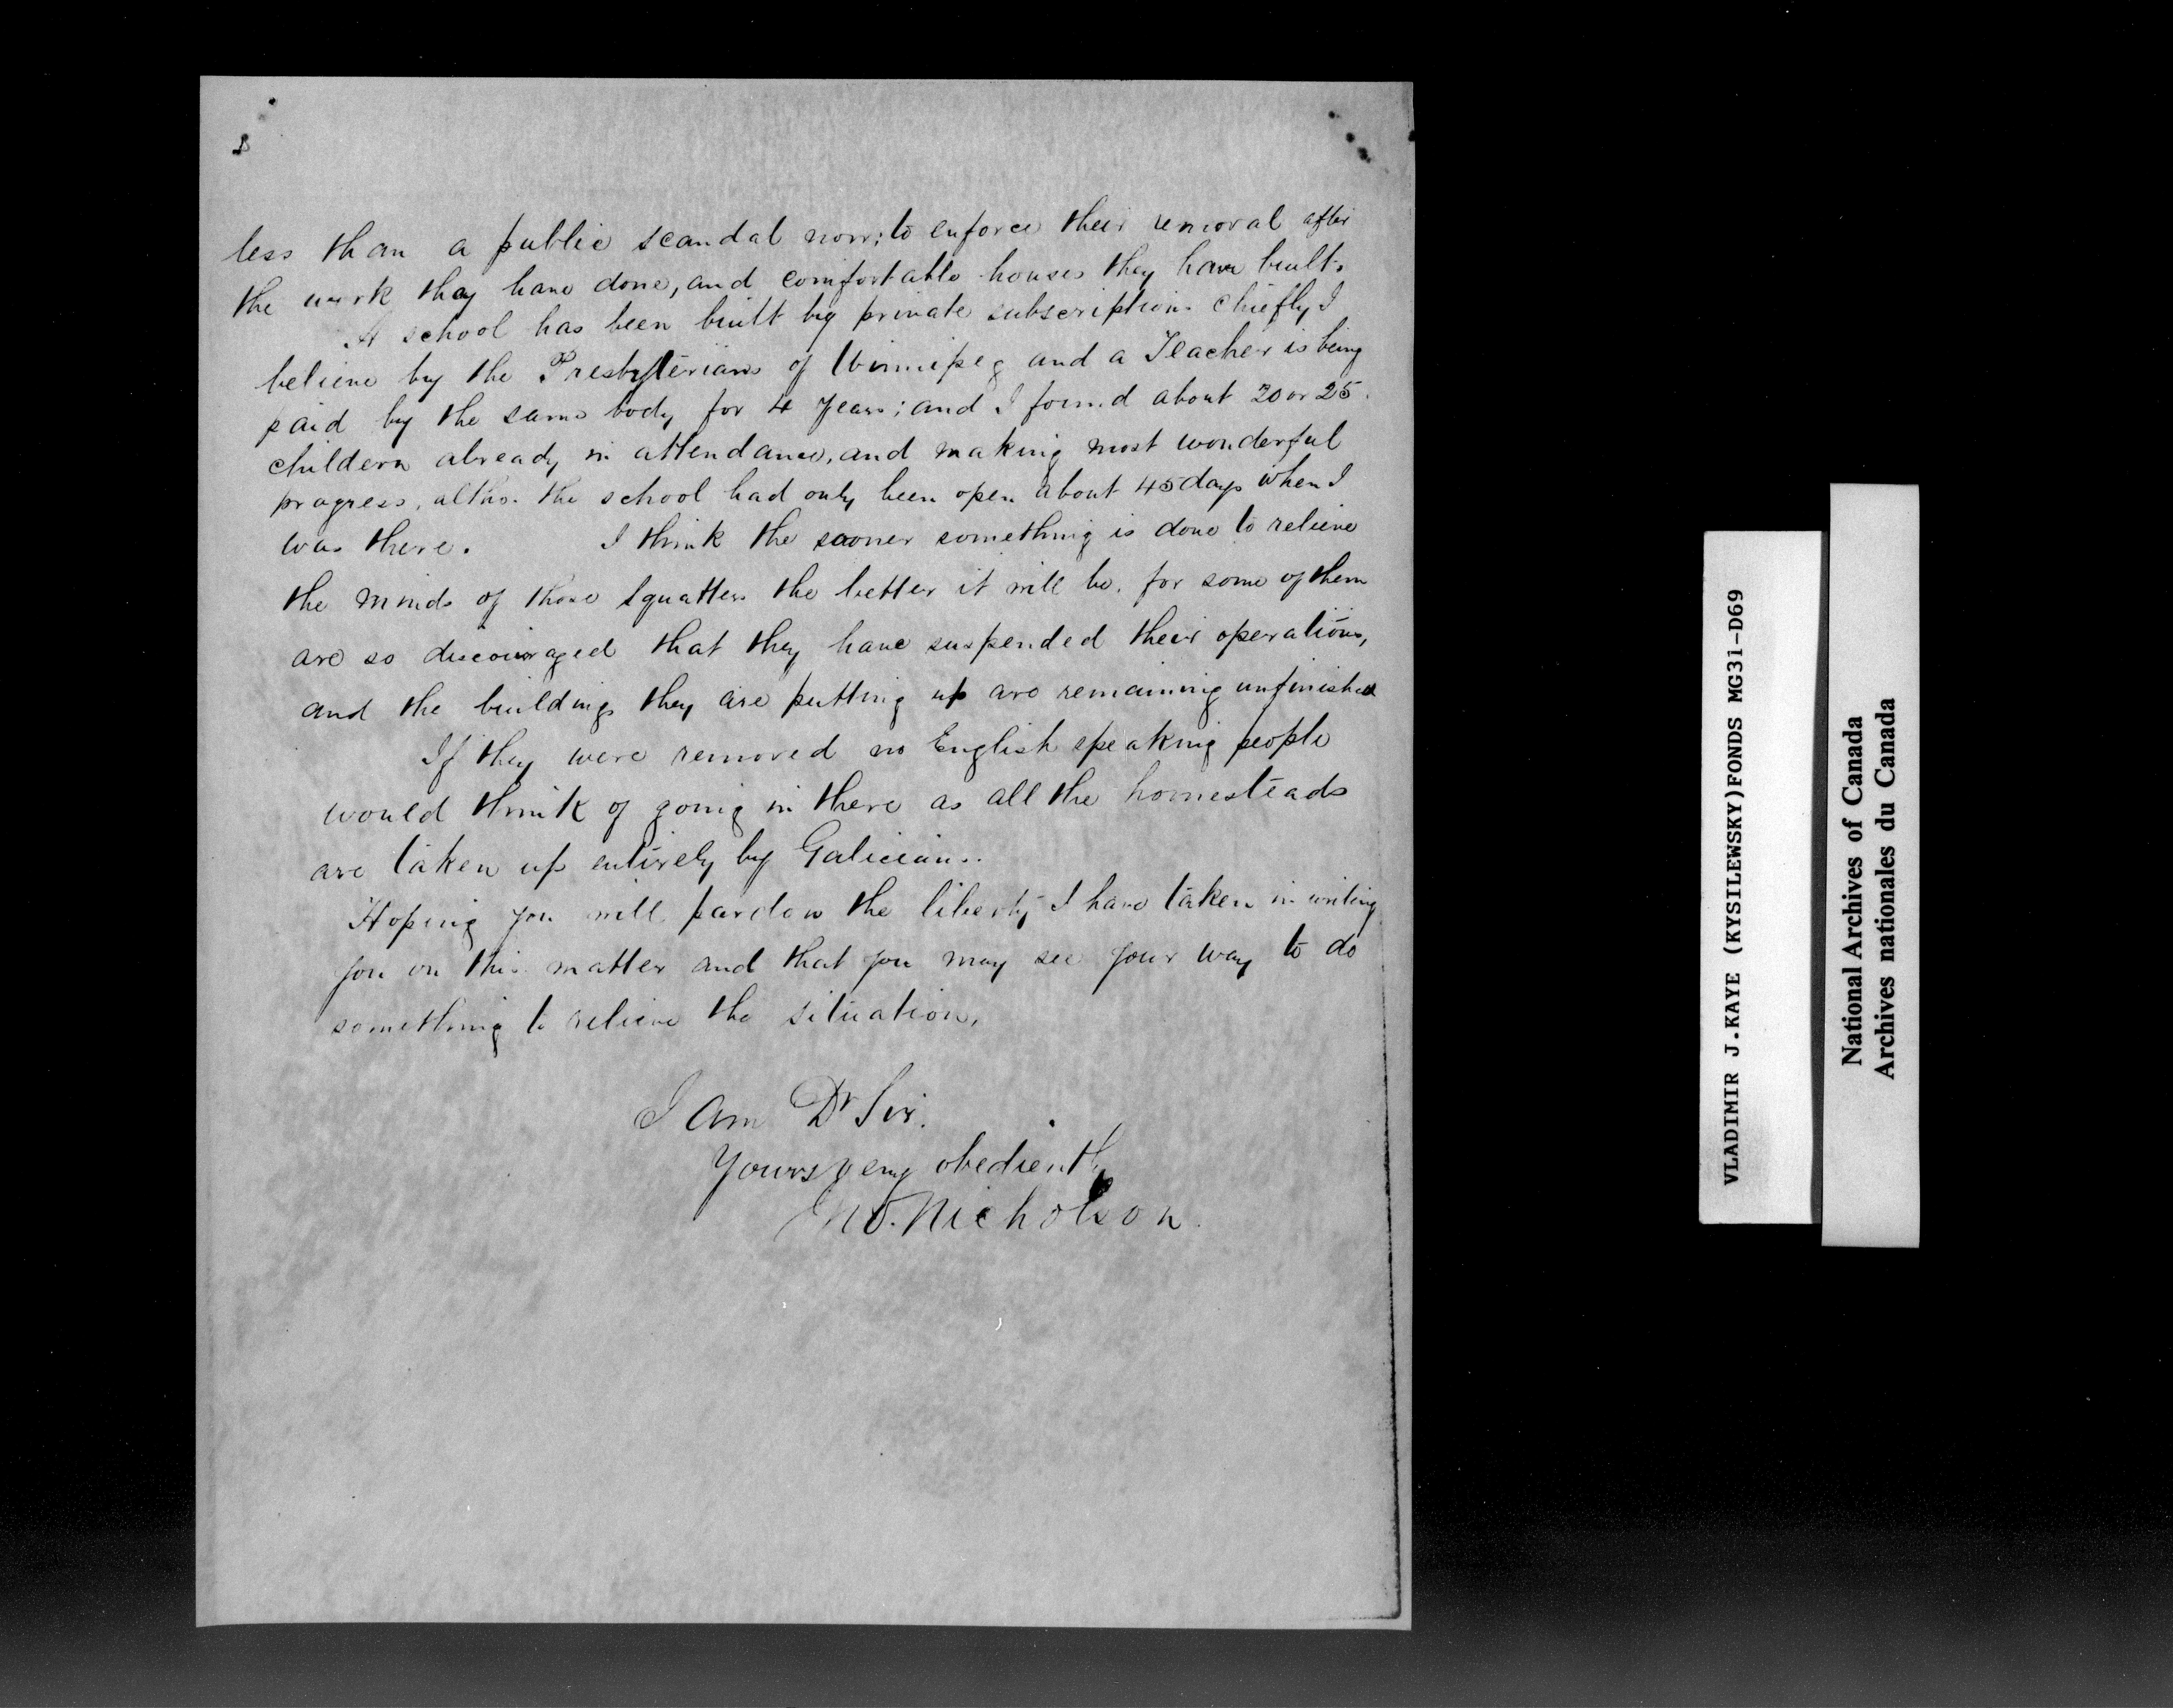 less than a public scandal now; to enforce their removal after
the work they have done, and comfortable houses they have built.
A school has been built by private subscription. Chiefly I
believe by the Presbyterians of Winnipeg and a Teacher is being
paid by the same body for 4 years; and I found about 20 or 25
childern already in attendance, and making most wonderful
progress, altho. the school had only been open about 45 days when I
was there. I think the sooner something is done to relieve
the minds of those squatters the better it will be, for some of them
are so discouraged that they have suspended their operations,
and the buildings they are putting up are remaining unfinished
If they were removed no English speaking people
would think of going in there as all the homesteads
are taken up entirely by Galicians.
Hoping you will pardon the liberty I have taken in writing
you on this matter and that you may see your way to do
something to relieve the situation.
I am Dr Sir.
Yours very obediently
Jno. Nicholson.
VLADIMIR J.KAYE (KYSILEWSKY)FONDS MG31-D69
National Archives of Canada
Archives nationales du Canada